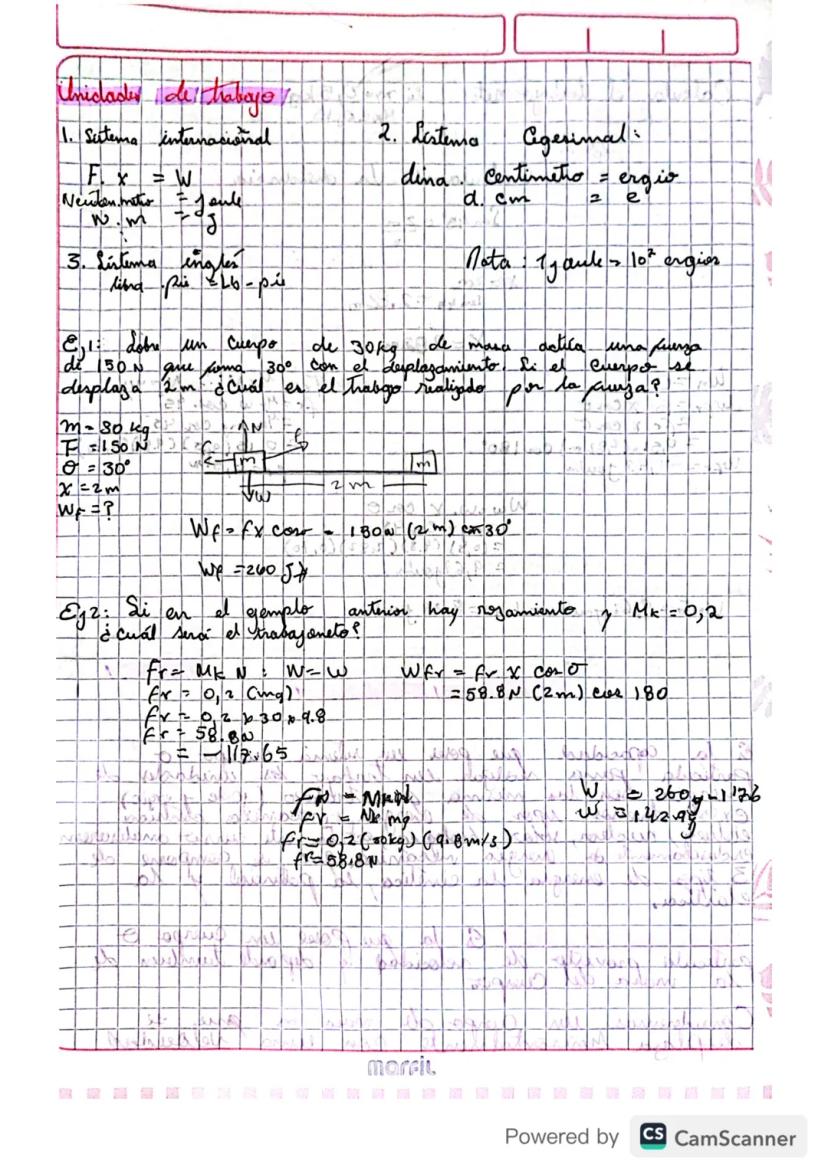 Unidades de trabajo
1. Sistema internacional
2. Sistema Cegesimal:
F. x = W
Newton.metro = Joule
N. m = J
dina . centimetro = ergio
d. cm = e
3. Sistema inglés
libra . pie = Lb - pie
Nota: 1 joule = 10⁷ ergios
Ej1: Sobre un cuerpo de 30kg de masa actúa una fuerza
de 150 N que forma 30° con el desplazamiento. Si el cuerpo se
desplaza 2m ¿Cuál es el trabajo realizado por la fuerza?
m = 30 kg
F = 150 N
θ = 30°
x = 2m
WF = ?
N
fr
F
m
m
2 m
W
Wf = fx cosσ = 150N (2 m) cos 30°
Wf = 260 J
Ej2: Si en el ejemplo anterior hay rozamiento y Mk = 0,2
¿cuál será el trabajo neto?
fr = Mk N : W = W
fr = 0,2 (mg)
fr = 0,2 x 30 x 9.8
fr = 58.8N
= -117.65
Wfr = fr x cos σ
= 58.8N (2m) cos 180
fr = Mk N
fr = Mk mg
fr = 0,2 (30kg) (9.8m/s)
fr = 58.8N
W = 260J - 1176
W = 142.4J
marfil
Powered by CS CamScanner